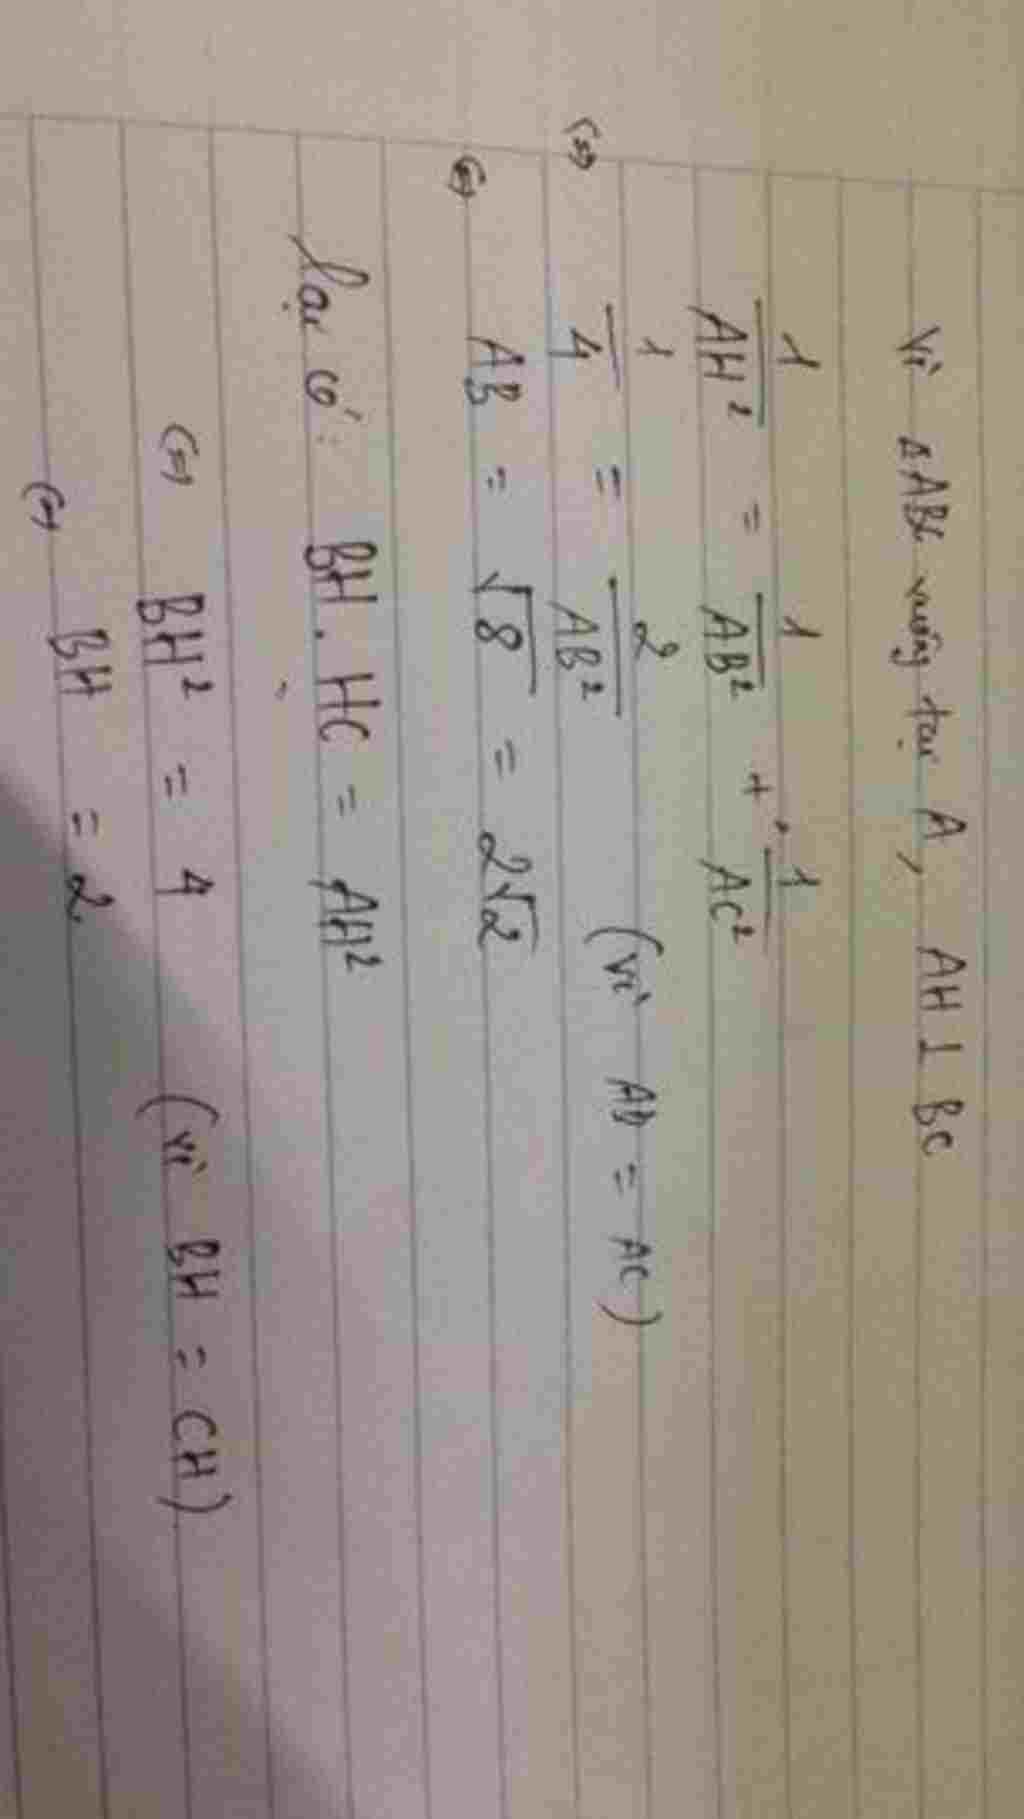 Vì ΔABC vuông tại A, AH ⊥ BC
1/AH² = 1/AB² + 1/AC²
(=) 1/4 = 2/AB² (vì AB = AC)
(=) AB = √8 = 2√2
Lại có: BH . HC = AH²
(=) BH² = 4 (vì BH = CH)
(=) BH = 2